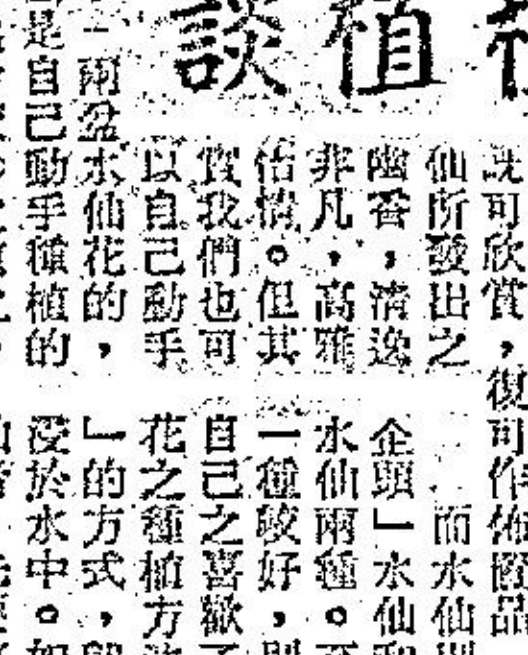 植談
可欣賞，復可作品
仙所發出之
幽香，清逸
非凡，高雅
怡情。但其
實我們也可
以自己動手
一兩盆水仙花的，
是自己動手種植的
而水仙
企頭」水仙
水仙兩種。至
一種較好，
自己之喜歡
花之種植方
」的方式，
浸於水中。如